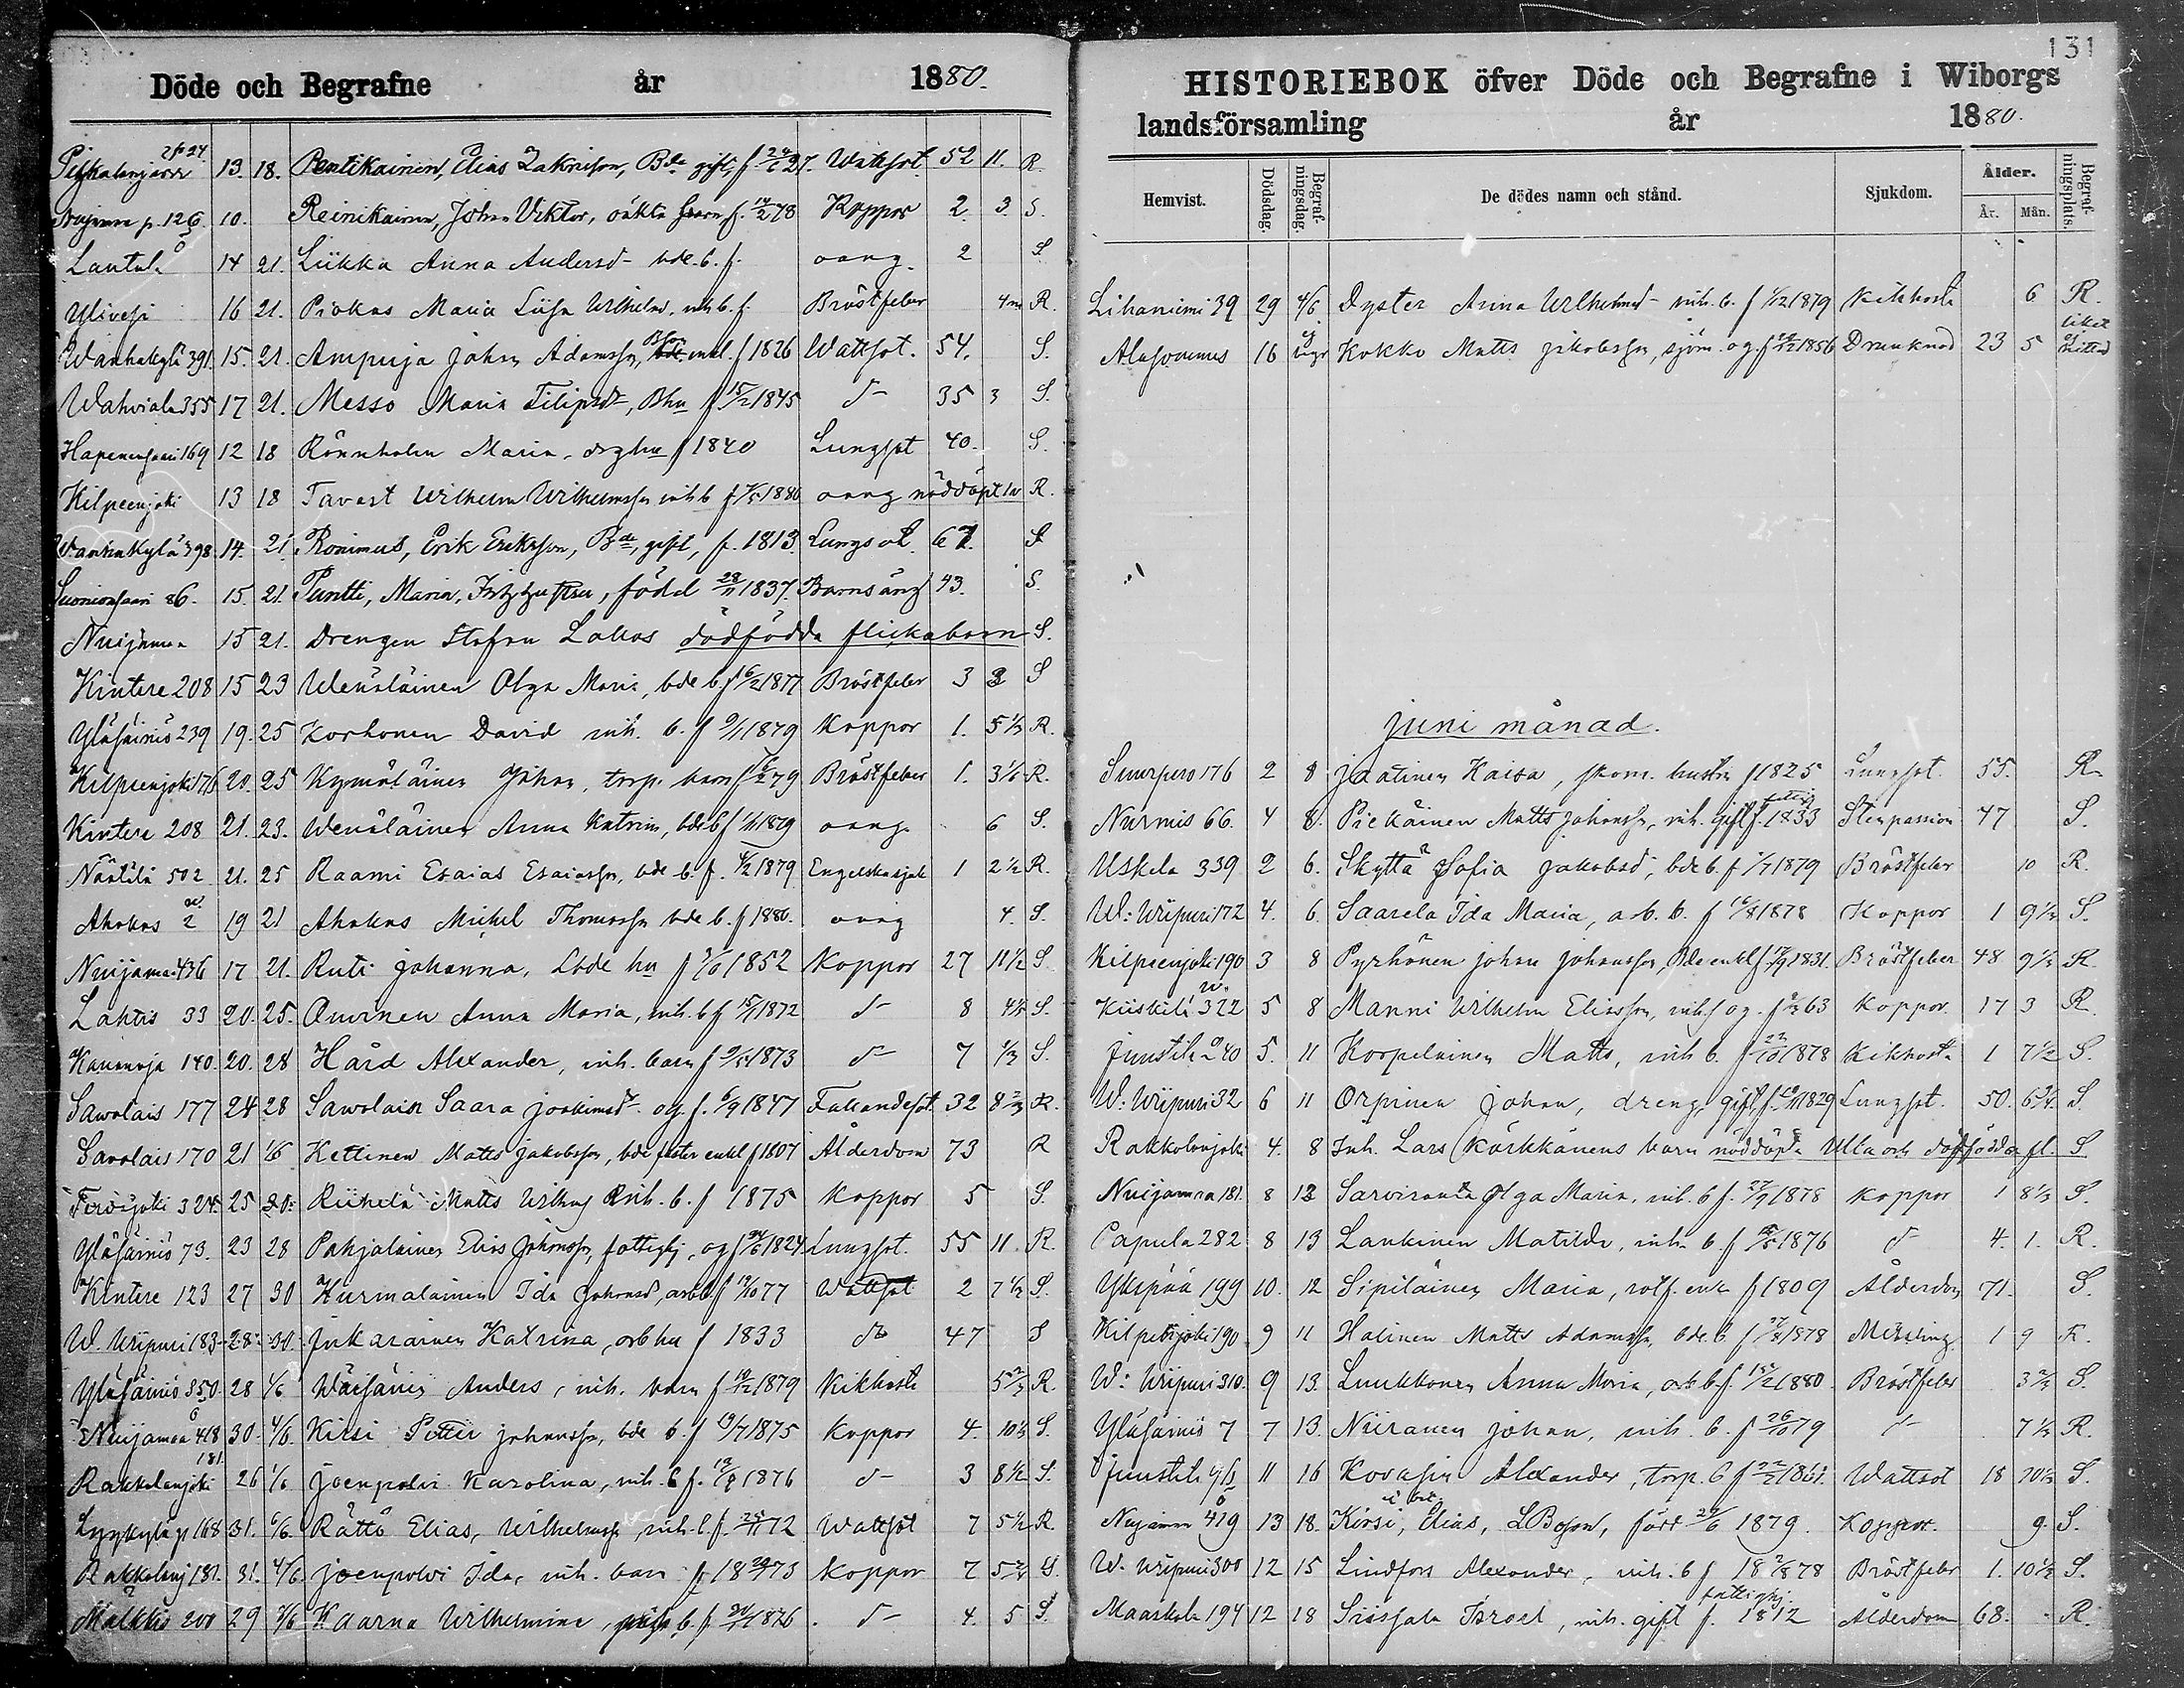 Döde och Begrafne år 1880.
13. 18. Pentikäinen, Elias Zakrisson, Bde gift, f 27. Wattsot 52 11. R.
Nuijamaa p. 126 10. Reinikainen, Johan Viktor, oäkta barn f. 14/2 78 Koppor 2. 3. S.
Lantula 14 21. Liikka Anna Andersd bde. b. f. oang. 2 S.
Ylivesi 16 21. Maria Wilhelmd, inh b. f. Bröstfeber 4 R.
Wanhakylä 391. 15. 21. Ampuja Johan Adamsson, enkl. f 1826 Wattsot. 54. S.
Wahviala 355 17 21. Messo Maria Filipsd, Bhu f 15/2 1845 d- 35 3 S.
Hapenensaari 169 12 18 Rönnholm Maria, hu f 1840 Lungsot 40. S.
Kilpeenjoki 13 18 Tavast Wilhelm Wilhelmsson inh b f 1880 oang nöddöpt R.
Wanhakylä 398. 14. 21 Ronimus, Erik Eriksson, Bde, gift, f. 1813. Lungsot. 67. S
Suonionsaari 86. 15. 21. Puntti, Maria, född 28/11 1837. Barnsäng 43. S.
Nuijamaa 15 21. Drengen Stefan Lallas dödfödda flickabarn S.
Kintere 208 15 23 Wenäläinen Olga Maria, bde b f 16/2 1877 Bröstfeber 3 3 S
Yläsäiniö 239 19. 25 Korhonen David inh. b. f 9/11 1879 Koppor 1. 5 1/3 R.
Kilpeenjoki 176 20. 25 Kymäläinen Johan, torp. barn f 79 Bröstfeber 1. 3 1/6 R.
Kintere 208 21. 23. Wenäläinen Anna Katrina, bde b f 1/11 1879 oang. 6 S.
Näätälä 502 21. 25 Raami Esaias Esaiasson, bde b. f. 1879 Engelska sjuk 1 2 1/2 R.
Ahokas 2 19 21 Ahokas Mickel Thomasson bde b. f 1880. oang 4. S.
Nuijamaa 436 17 21. Ruti Johanna, Lbde hu f 1852 Koppor 27 11 1/2 S.
Lahtis 33 20. 25. Anna Maria, inh. b f 15/1 1872 d- 8 4 1/3 S.
140. 20. 28 Hård Alexander, inh. barn f 1873 d- 7 1/3 S.
Sawolais 177 24 28 Sawolain Saara Joakimsd og. f. 6/9 1847 Fallandesot. 32 8 2/3 R.
Savolais 170 21 1/6 Kettinen Matts Jakobsson, enkl f 1807 Ålderdom 73 R
Terwajoki 324. 25 30. Riihelä Matts Wilhelm inh. b. f 1875 Koppor 5 S.
Yläsäiniö 73. 23 28 Pahjalainen Elias Johansson, fattighj, og f 1824 Lungsot. 55 11. R.
Kintere 123 27 30 Hurmalainen Ida Johansd, arb b f 19/10 77 Wattsot 2 7 1/3 S.
W. Wiipuri 183 28. 30. Jukarainen Katrina, arb hu f 1833 d- 47 S
Yläsäiniö 350. 28 1/6 Wäisänen Anders, inh. barn f 10/12 1879 Kikhosta 5 2/3 R.
Nuijamaa 418 30. 4/6. Kirsi Petter Johansson, bde b. f 19/7 1875 Koppor 4. 10 1/3 S.
Rakkolanjoki 181. 26 1/6 Joenpolvi Karolina, inh. b f. 1876 d- 3 8 1/2 S.
Lyykylä p 168 31. 6/6. Rättö Elias, Wilhelmsson inh. b. f. 72 Wattsot 7 5 1/2 R
Rakkolanj 181. 31. 4/6. Joenpolvi Ida, inh. barn f 18 73 Koppor 7 S.
Mälkkis 200 29 Kaarna Wilhelmina, b. f. 1876 d- 4. 5 S.
131
HISTORIEBOK öfver Döde och Begrafne i Wiborgs
landsförsamling år 1880.
Hemvist. Dödsdag. Begrafningsdag. De dödes namn och stånd. Sjukdom. Ålder. År. Mån. Begrafningsplats.
Lihaniemi 39 29 4/6 Dyster Anna Wilhelmd inh. b. f 1/12 1879 Kikhosta 6 R.
Alasommes 16 Kokko Matts Jakobsson, sjöm. og. f 1856 Drunknad 23 5 liket ej hittad
Juni månad.
Suurpero 176 2 8 Jäätinen Kaisa, skom. hustru f 1825 Lungsot. 55. R.
Nurmis 66. 4 8. Piekäinen Matts Johansson, inh. gift f. 1833 fattig Stenpassion 47 S.
Uskela 339 2 6. Skyttä Sofia Jakobsd, bde b. f 1879 Bröstfeber 10 R.
W: Wiipuri 172 4. 6. Saarela Ida Maria, arb. b. f 16/8 1878 Koppor 1 9 1/3 S.
Kilpeenjoki 190 3 8 Pyrhönen Johan Johansson, Bde enkl f. 1831. Bröstfeber 48 9 1/3 R.
Kiiskilä 322 5 8 Manni Wilhelm Eliasson, inh. s og. f 63 Koppor. 17 3 R.
Juustila 40 5. 11 Korpelainen Matts, inh b. f 22/10 1878 Kikhosta 1 7 1/2 S.
W: Wiipuri 32 6 11 Orpinen Johan, dreng, gift, f. 1829 Lungsot. 50. 6 3/4. S.
Rakkolanjoki 4. 8 Inh. Lars Kärkkänens barn nöddöpta Ulla och dödfödda fl. S
Nuijamaa 181. 8 13 Sarviranta Olga Maria, inh. b f. 27/9 1878 Koppor 1 8 1/3 S.
Papula 282 8 13 Lankinen Matilda, inh. b. f 1876 d- 4. 1. R.
Ykspää 199 10. 12 Sipiläinen Maria, rotf. enk f 1809 Ålderdom 71. S.
Kilpeenjoki 190. 9 11 Halinen Matts Adamsson, bde b f 1878 Messling 1 9 R.
W: Wiipuri 310. 9 13. Luukkonen Anna Maria, arb b. f. 15/2 1880. Bröstfeber 3 2/3 S.
Yläsäiniö 7 7 13. Niiranen Johan, inh. b. f 26/10 79 d- 7 1/3 R.
Juustila 11 16 Kovasin Alexander, torp. b f Wattsot 18 10 1/3 S.
Nuijamaa 419 13 18. Kirsi, Elias, LBoson, född 29/6 1879. Koppor. 9. S.
W. Wiipuri 300 12 15 Lindfors Alexander, inh. b f 18 2/8 78 Bröstfeber 1. 10 1/3 S.
Maaskola 194 12 18 Siissala Israel, inh. gift f. 1812 fattighj. Ålderdom 68. R.